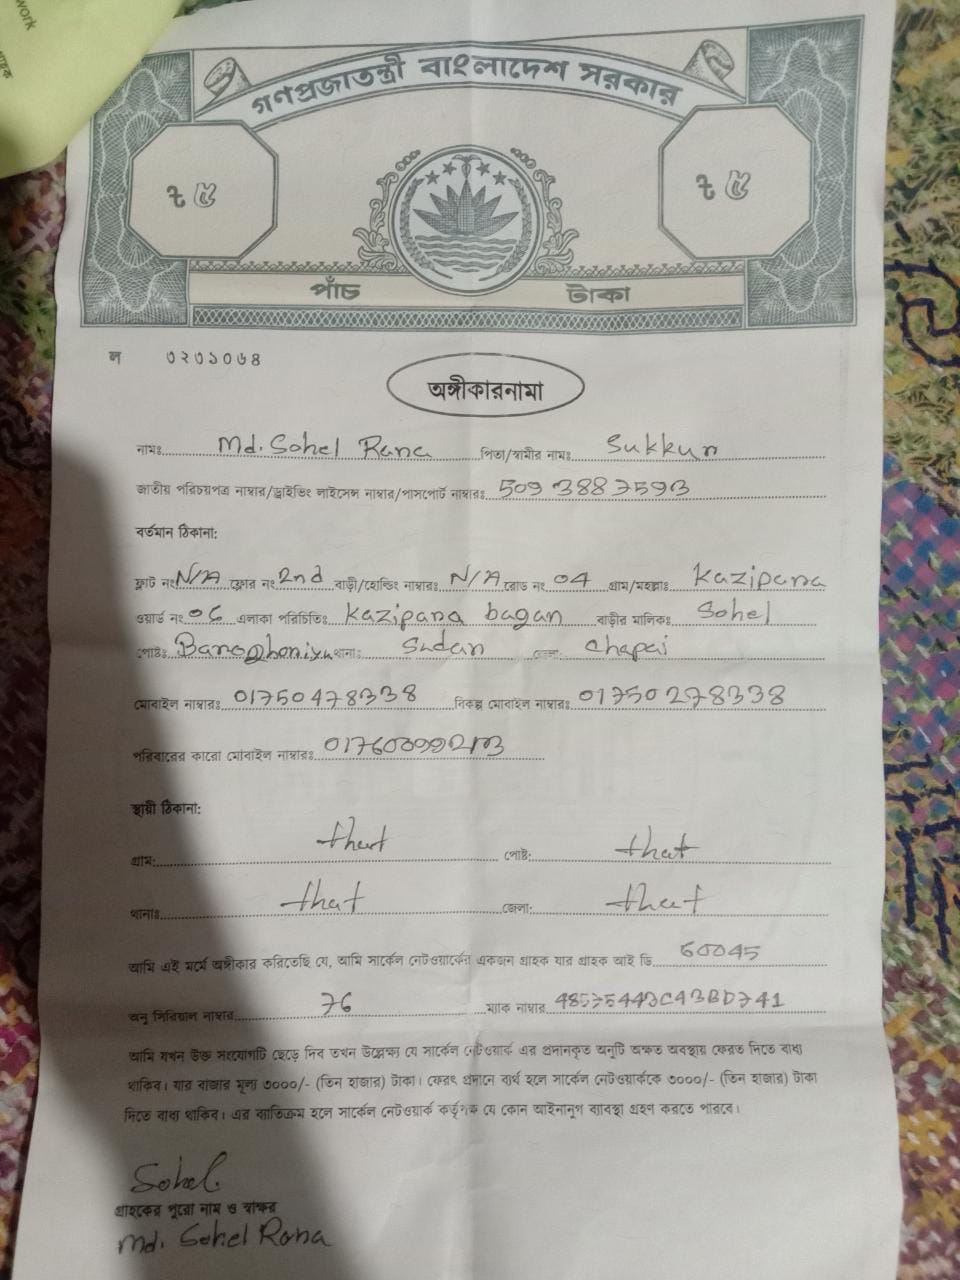 work
গণপ্রজাতন্ত্রী বাংলাদেশ সরকার
৳ ৫ ৳ ৫
পাঁচ টাকা
ল ৩২৩১০৬৪
অঙ্গীকারনামা
নামঃ Md. Sohel Rana পিতা/স্বামীর নামঃ Sukkun
জাতীয় পরিচয়পত্র নাম্বার/ড্রাইভিং লাইসেন্স নাম্বার/পাসপোর্ট নাম্বারঃ 5093887593
বর্তমান ঠিকানা:
ফ্লাট নং N/A ফ্লোর নং 2nd বাড়ী/হোল্ডিং নাম্বারঃ N/A রোড নং 04 গ্রাম/মহল্লাঃ Kazipana
ওয়ার্ড নং 06 এলাকা পরিচিতিঃ Kazipana bagan বাড়ীর মালিকঃ Sohel
পোষ্টঃ থানাঃ Sudan জেলা: Chapai
মোবাইল নাম্বারঃ 01750478338 বিকল্প মোবাইল নাম্বারঃ 01750278338
পরিবারের কারো মোবাইল নাম্বারঃ
স্থায়ী ঠিকানা:
গ্রাম: that পোষ্ট: that
থানাঃ that জেলা: that
আমি এই মর্মে অঙ্গীকার করিতেছি যে, আমি সার্কেল নেটওয়ার্কের একজন গ্রাহক যার গ্রাহক আই ডি 60045
অনু সিরিয়াল নাম্বার 76 ম্যাক নাম্বার 48575443C43BD741
আমি যখন উক্ত সংযোগটি ছেড়ে দিব তখন উল্লেক্ষ্য যে সার্কেল নেটওয়ার্ক এর প্রদানকৃত অনুটি অক্ষত অবস্থায় ফেরত দিতে বাধ্য
থাকিব। যার বাজার মূল্য ৩০০০/- (তিন হাজার) টাকা। ফেরৎ প্রদানে ব্যর্থ হলে সার্কেল নেটওয়ার্ককে ৩০০০/- (তিন হাজার) টাকা
দিতে বাধ্য থাকিব। এর ব্যতিক্রম হলে সার্কেল নেটওয়ার্ক কর্তৃপক্ষ যে কোন আইনানুগ ব্যবস্থা গ্রহণ করতে পারবে।
Sohel
গ্রাহকের পুরো নাম ও স্বাক্ষর
Md. Sohel Rana